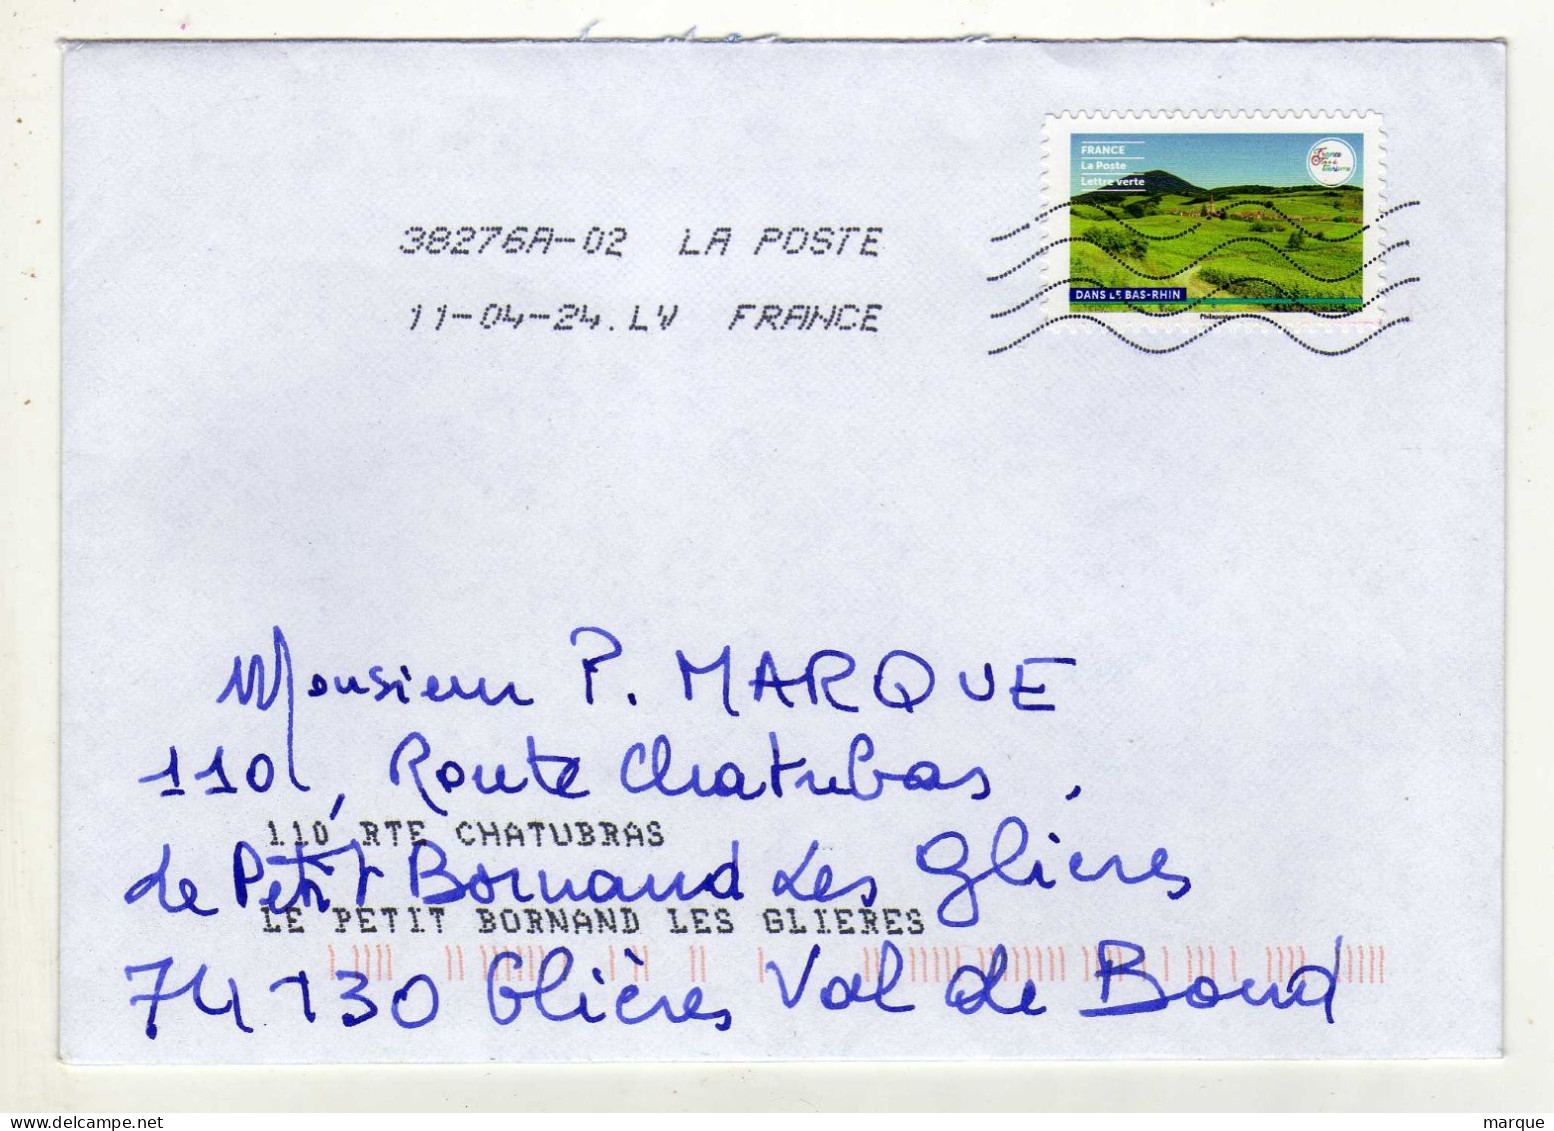 FRANCE
La Poste
Lettre verte
DANS LE BAS-RHIN
38276A-02 LA POSTE
11-04-24.LV FRANCE
Monsieur P. MARQUE
110, Route Chatubas,
110 RTE CHATUBRAS
de Petit Bornand Les Glieres
LE PETIT BORNAND LES GLIERES
74130 Glières Val de Bond
www.delcampe.net
marque